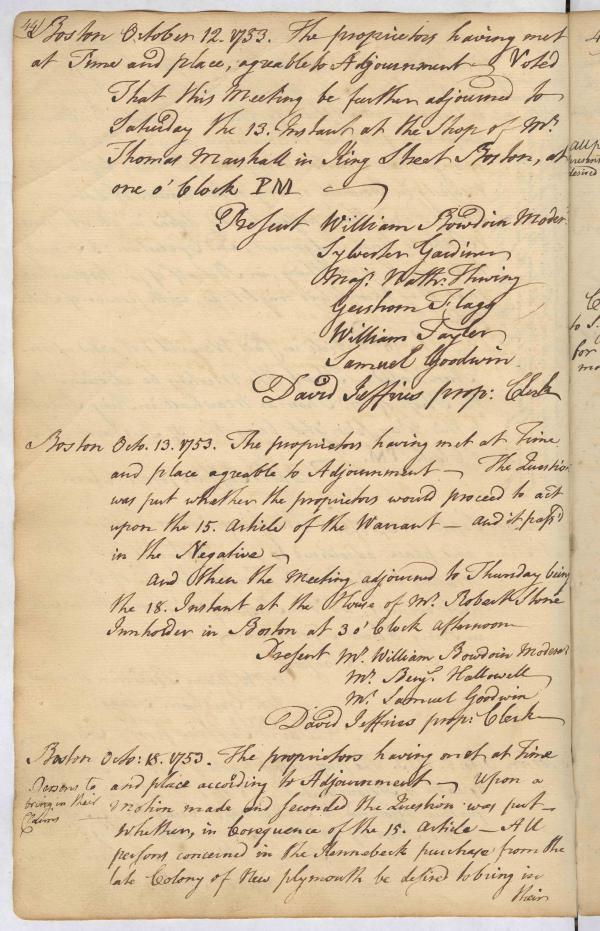 44
Boston October 12. 1753. The proprietors having met
at Time and place, agreable to Adjournment Voted
That this Meeting be further adjourned to
Saturday the 13. Instant at the Shop of Mr.
Thomas Marshall in King Street Boston, at
one o'Clock PM
Present William Bowdoin Moder.
Sylvester Gardiner
Maj. Nathr. Thwing
Gershom Flagg
William Tayler
Samuel Goodwin
David Jeffries prop: Clerk
Boston Octo. 13. 1753. The proprietors having met at Time
and place agreable to Adjournment — The Question
was put whether the proprietors would proceed to act
upon the 15. Article of the Warrant — and it pass'd
in the Negative —
And then the Meeting adjourned to Thursday being
the 18. Instant at the House of Mr. Robert Stone
Innholder in Boston at 3 o'Clock afternoon
Present Mr. William Bowdoin Moderat
Mr. Benj. Hallowell
Mr. Samuel Goodwin
David Jeffries prop: Clerk
Boston Octo: 18. 1753. The proprietors having met at Time
Persons to
bring in their
Claims
and place according to Adjournment — Upon a
Motion made and seconded the Question was put —
Whether, in Consequence of the 15. Article — All
persons concerned in the Kennebeck purchase from the
late Colony of New plymouth be desired to bring in
their
All p
desired
to S
for